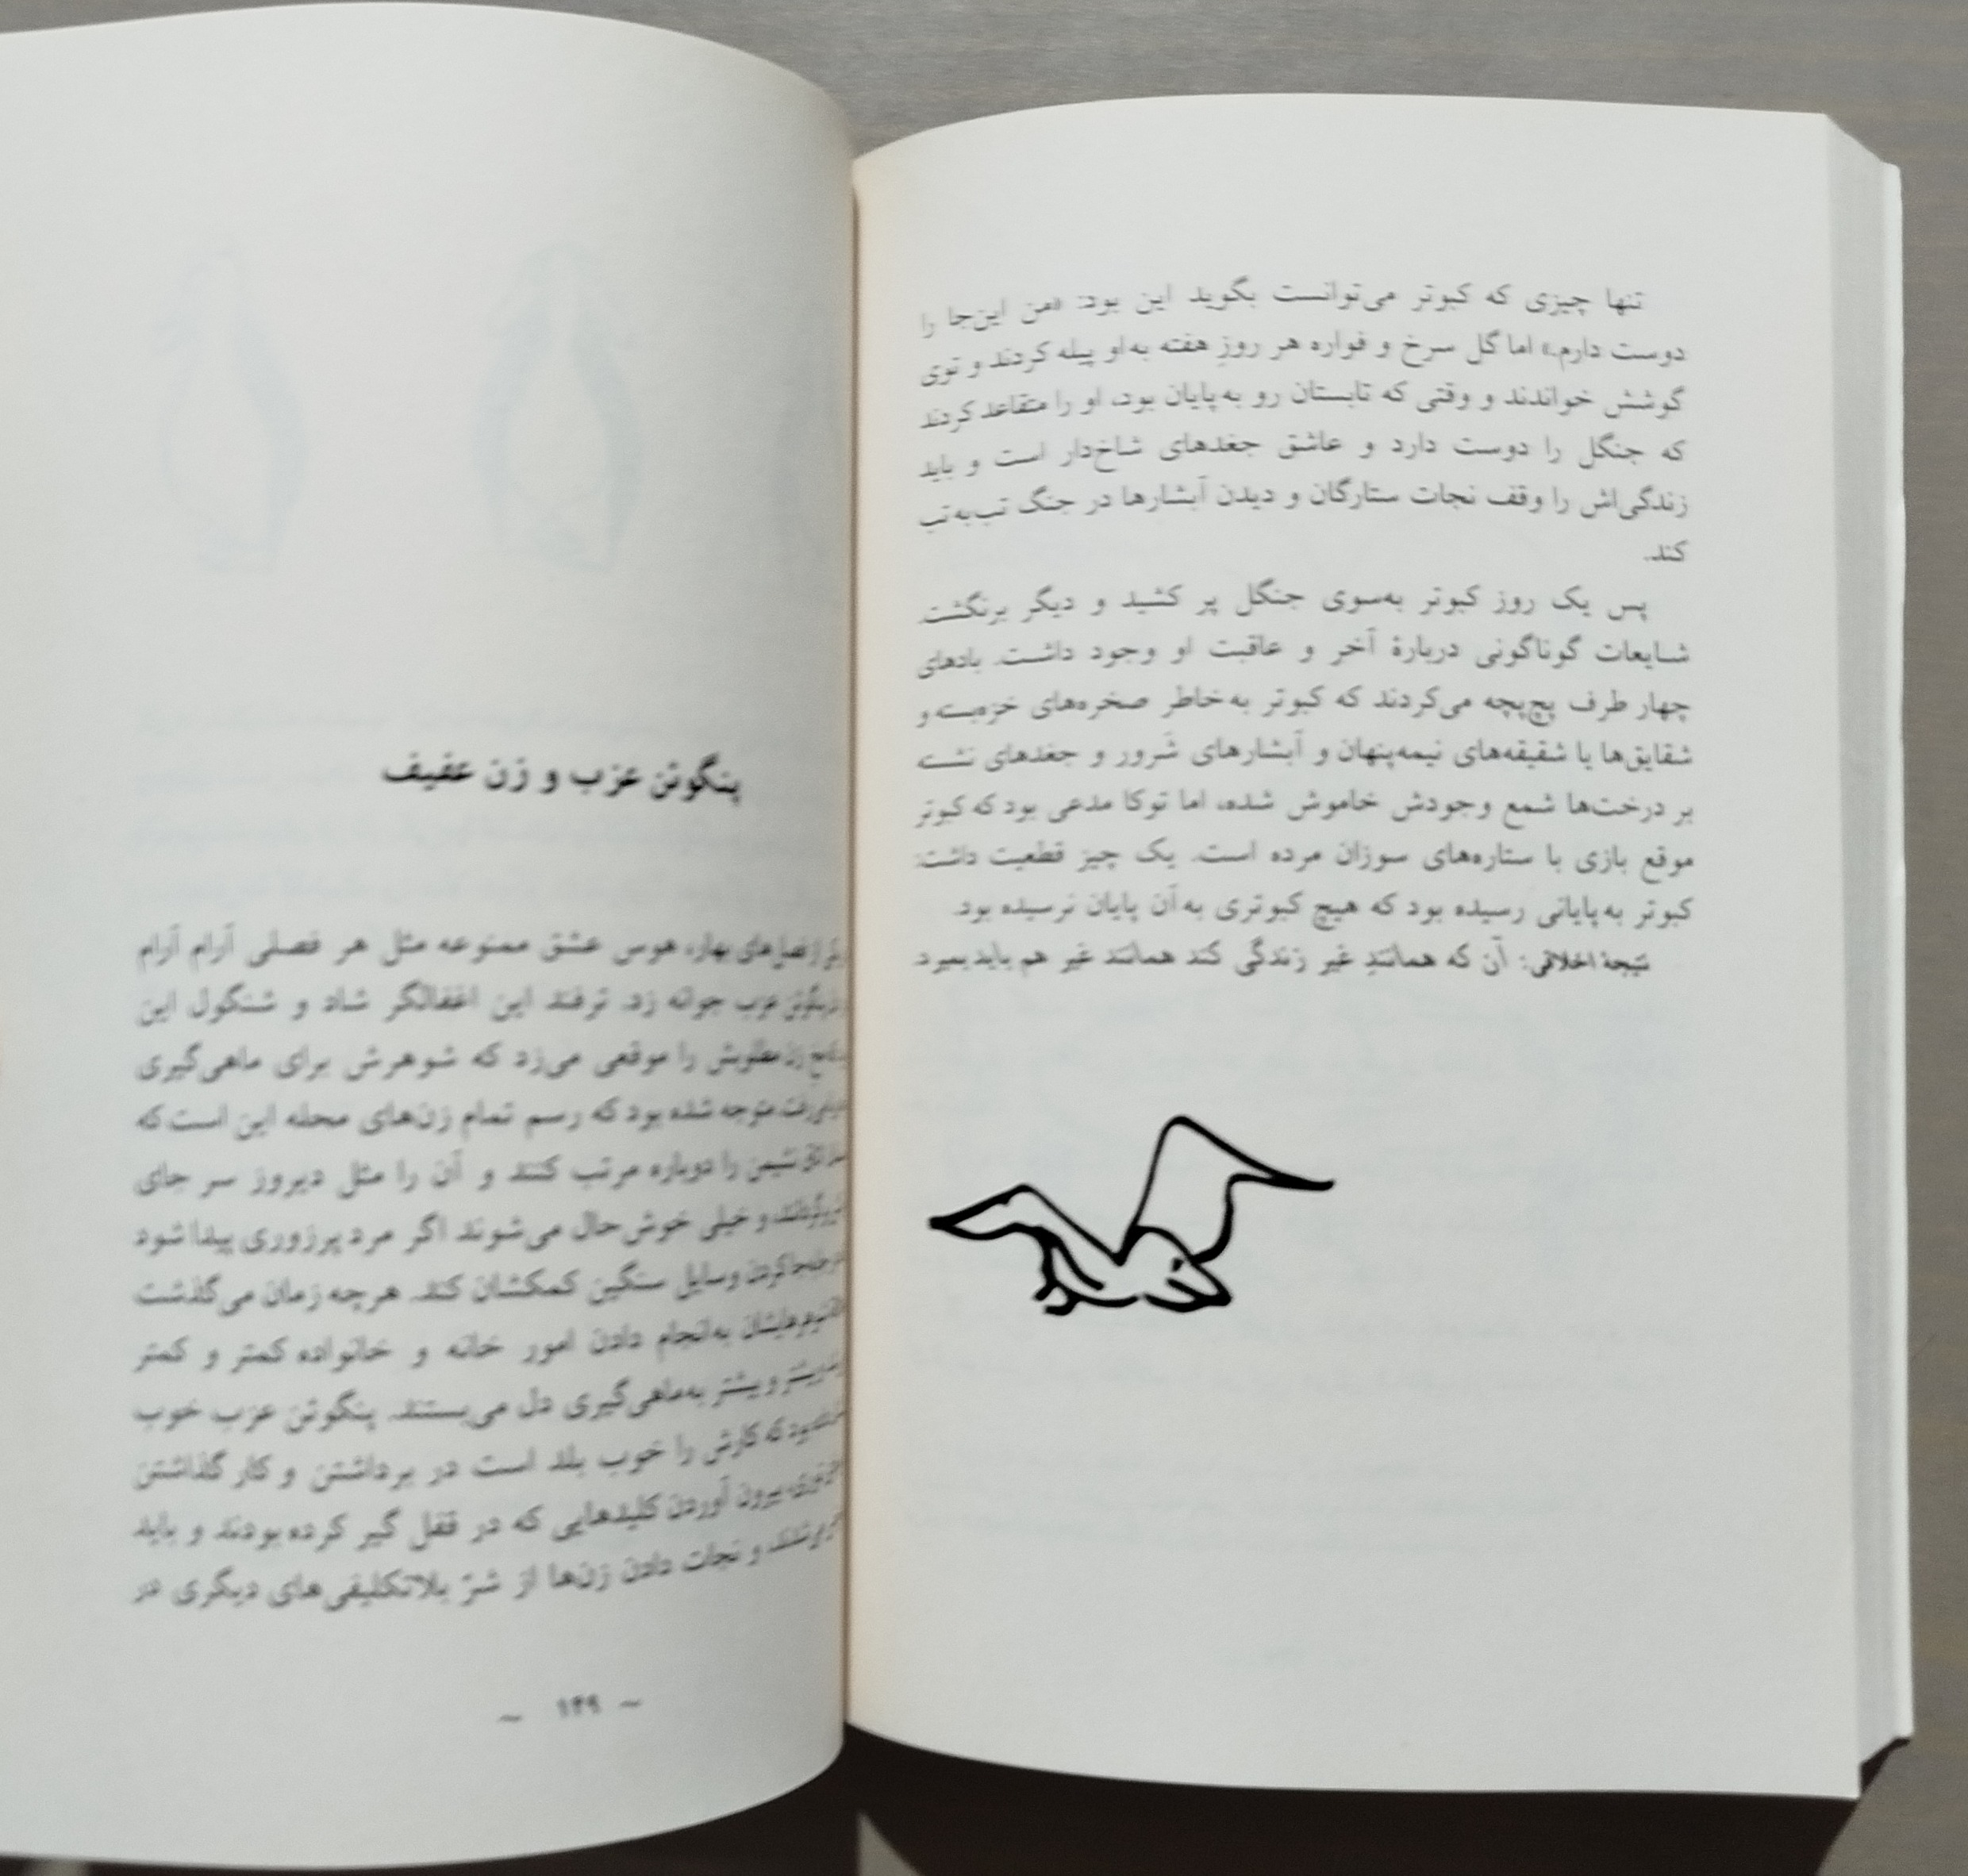 تنها چیزی که کبوتر می‌توانست بگوید این بود: «من این‌جا را
دوست دارم.» اما گل سرخ و فواره هر روزِ هفته به‌او پیله کردند و توی
گوشش خواندند و وقتی که تابستان رو به‌پایان بود، او را متقاعد کردند
که جنگل را دوست دارد و عاشق جغدهای شاخ‌دار است و باید
زندگی‌اش را وقف نجات ستارگان و دیدن آبشارها در جنگ تب‌به‌تب
کند.
پس یک روز کبوتر به‌سوی جنگل پر کشید و دیگر برنگشت.
شایعات گوناگونی دربارهٔ آخر و عاقبت او وجود داشت. بادهای
چهار طرف پچ‌پچه می‌کردند که کبوتر به‌خاطر صخره‌های خزه‌بسته و
شقایق‌ها یا شفیقه‌های نیمه‌پنهان و آبشارهای شَرور و جغدهای
بر درخت‌ها شمع وجودش خاموش شده، اما توکا مدعی بود که کبوتر
موقع بازی با ستاره‌های سوزان مرده است. یک چیز قطعیت داشت:
کبوتر به‌پایانی رسیده بود که هیچ کبوتری به‌آن پایان نرسیده بود.
نتیجهٔ اخلاقی: آن که همانندِ غیر زندگی کند همانند غیر هم باید بمیرد.
پنگوئن عزب و زن عفیف
از فصل‌های بهار، هوس عشق ممنوعه مثل هر فصلی آرام آرام
پنگوئن عزب جوانه زد. ترفند این اغفالگر شاد و شنگول این
زن مطلوبش را موقعی می‌زد که شوهرش برای ماهی‌گیری
متوجه شده بود که رسم تمام زن‌های محله این است که
اتاق نشیمن را دوباره مرتب کنند و آن را مثل دیروز سر جای
برگردانند و خیلی خوش‌حال می‌شوند اگر مرد پرزوری پیدا شود
جابه‌جا کردن وسایل سنگین کمکشان کند. هرچه زمان می‌گذشت
شوهرهایشان به‌انجام دادن امور خانه و خانواده کمتر و کمتر
بیشتر و بیشتر به‌ماهی‌گیری دل می‌بستند. پنگوئن عزب خوب
بود که کارش را خوب بلد است در برداشتن و کار گذاشتن
بیرون آوردن کلیدهایی که در قفل گیر کرده بودند و باید
می‌شدند، و نجات دادن زن‌ها از شرّ بلاتکلیفی‌های دیگری در
~ ۱۴۹ ~